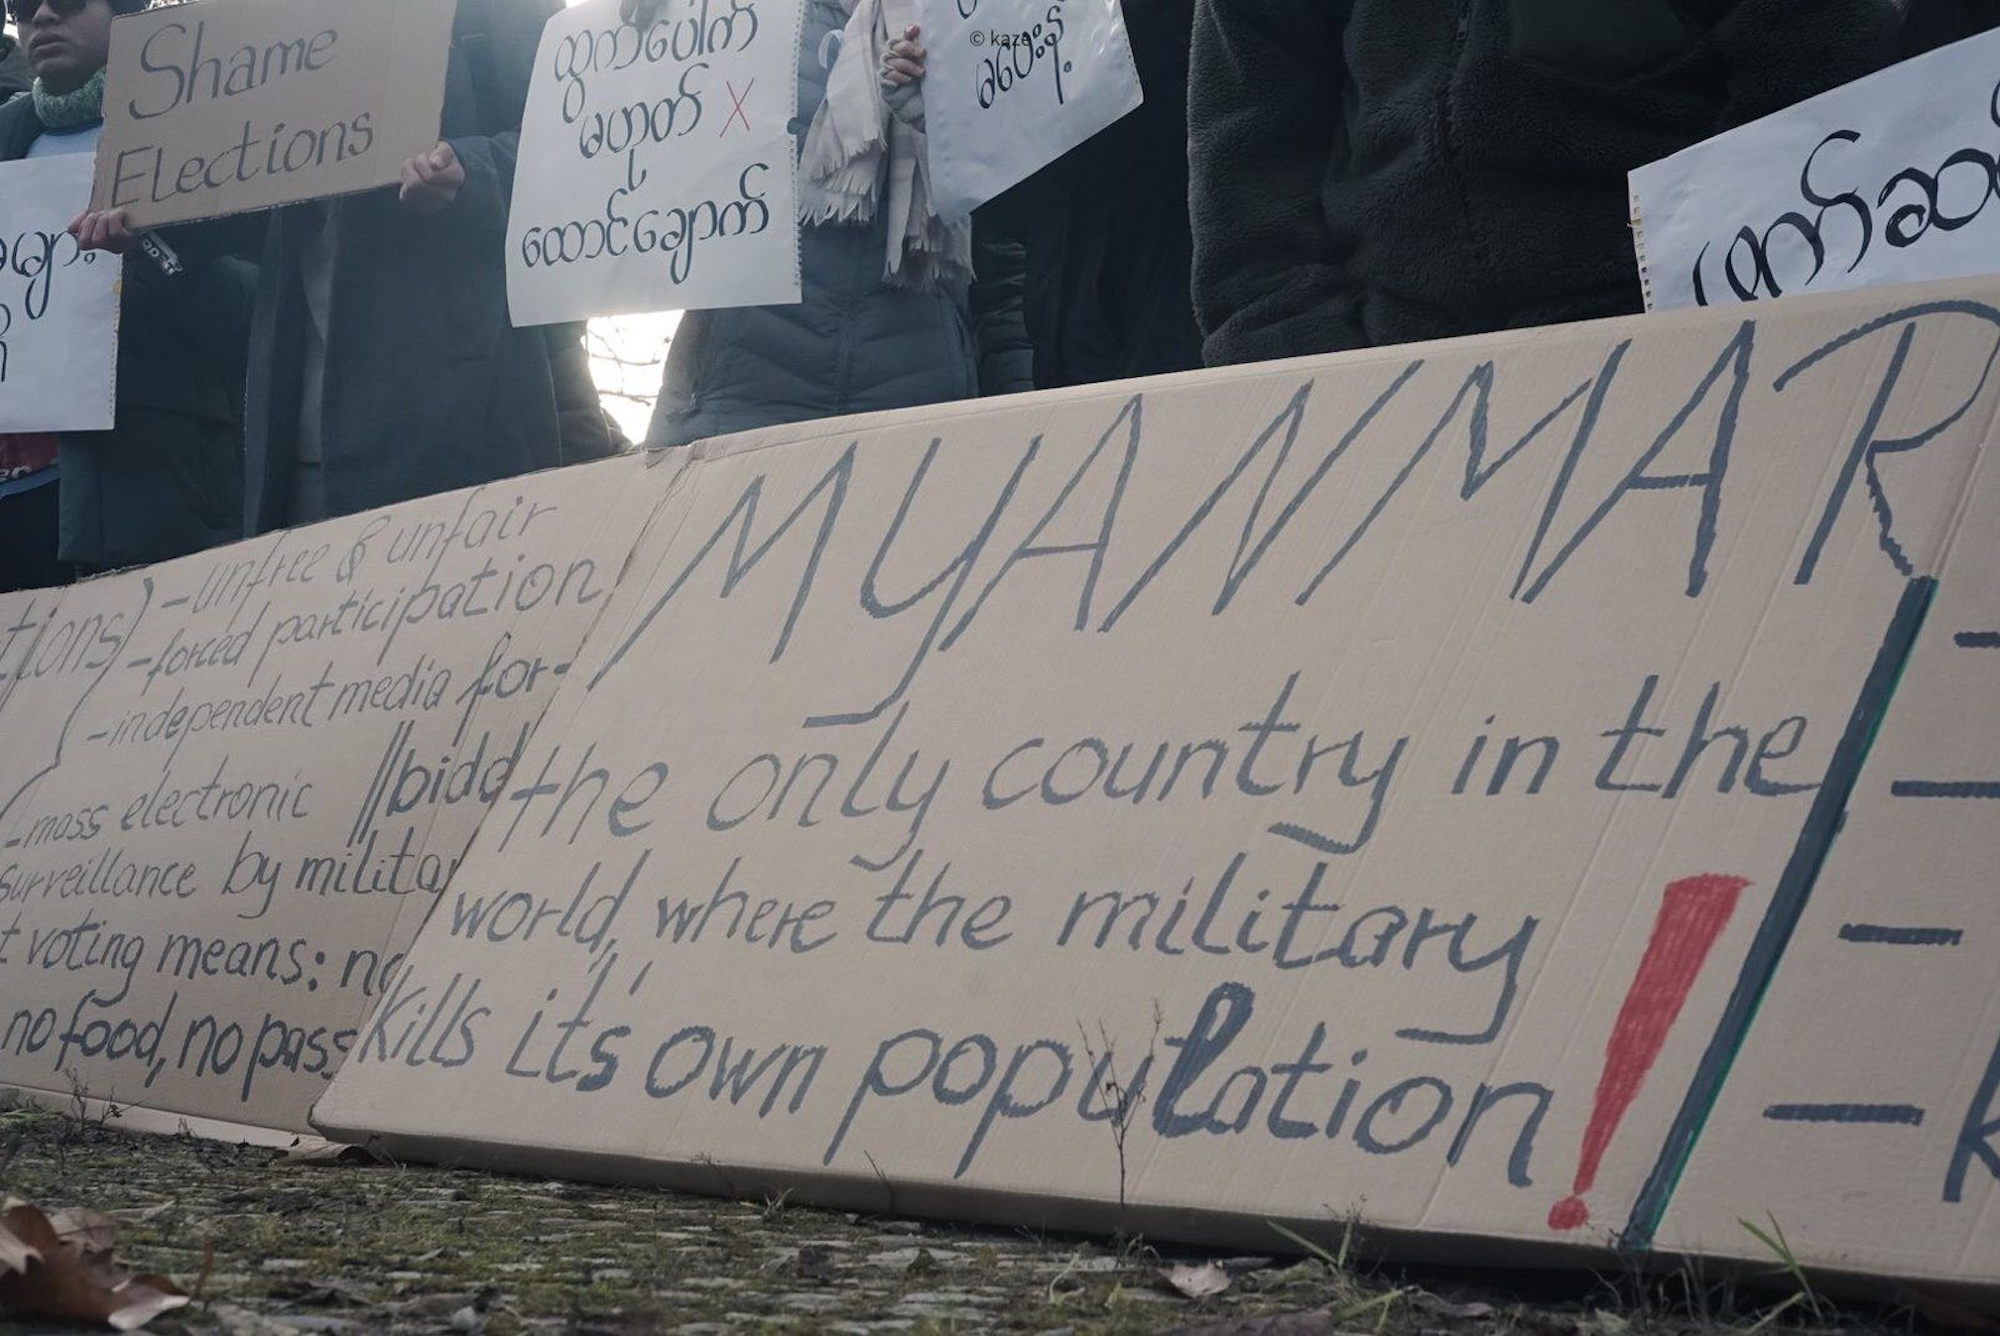 Shame
Elections
ထွက်ပေါက်
မဟုတ် X
ထောင်ချောက်
© kaze
မပေးနဲ့
er
tions) - unfree & unfair
- forced participation
- independent media for-
|| bidd
- mass electronic
surveillance by militar
t voting means: no
no food, no pass
MYANMAR
the only country in the
world, where the military
kills it's own population!
-
-
-
- k